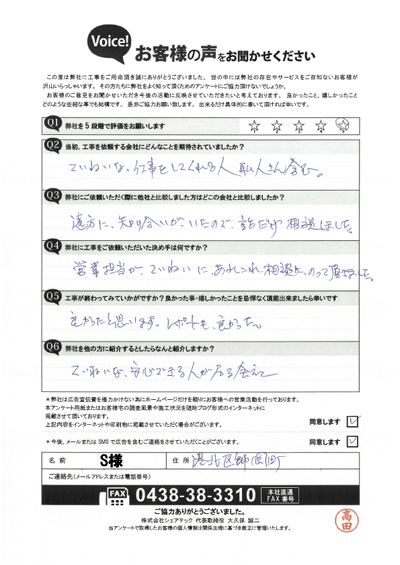 Voice!
お客様の声をお聞かせください
この度は弊社に工事をご用命頂き誠にありがとうございました。世の中には弊社の存在やサービスをご存知ないお客様が
沢山いらっしゃいます。その方たちに弊社をよく知って頂くためのアンケートにご協力頂けないでしょうか。
お客様のご意見をお聞かせいただき今後の活動に反映させていただきたいと考えております。良かったこと、嬉しかったこと
どのような些細な事でも結構です。是非ご協力お願い致します。出来るだけ具体的に書いて頂ければ幸いです。
Q1 弊社を5段階で評価をお願いします ☆ ☆ ☆ ☆ ☆
Q2 当初、工事を依頼する会社にどんなことを期待されていましたか?
ていねいな、仕事をしてくれる人
Q3 弊社にご依頼いただく際に他社と比較しました方はどこの会社と比較しましたか?
遠方に、知り合いがいたので、話だけ相談しました。
Q4 弊社に工事をご依頼いただいた決め手は何ですか?
営業担当が、ていねいに、あれこれ相談に、のって頂きました。
Q5 工事が終わってみていかがですか?良かった事・嬉しかったことを忌憚なく頂戴出来ましたら幸いです
良かったと思います。レポートも、良かった。
Q6 弊社を他の方に紹介するとしたらなんと紹介しますか?
ていねいな、安心できる人が居る会社
*弊社は広告宣伝費を極力かけない為にホームページだけを頼りにお客様への営業活動を行っております。
本アンケート用紙またはお客様宅の調査風景や施工状況を随時ブログ形式のインターネットに
掲載させて頂いております。
上記内容をインターネットや印刷物に掲載させていただく場合がございます。 同意します ✓
*今後、メールまたは SMS で広告を含むご連絡をさせていただくことがございます。 同意します ✓
名前 S様 住所 港北区師岡町
ご連絡先(メールアドレスまたは電話番号)
FAX 0438-38-3310 本社直通 FAX番号
ご協力ありがとうございました。
株式会社シェアテック 代表取締役 大久保 誠二
当アンケートで取得したお客様の個人情報は関係法規に基づき厳正に管理いたします。
高田